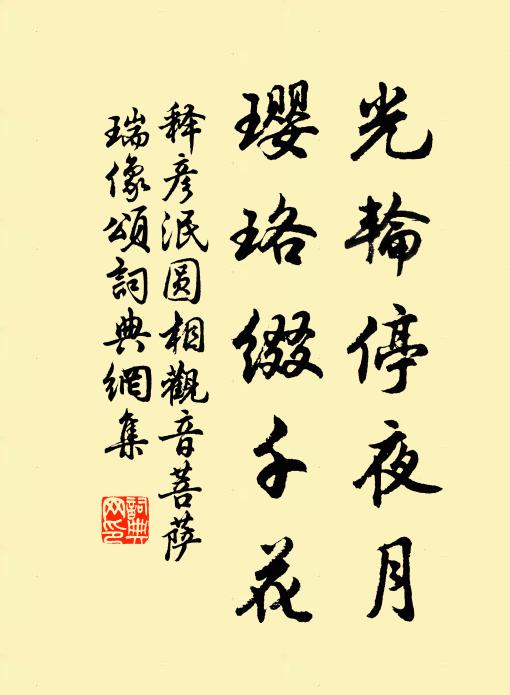 光輪停夜月
瓔珞綴千花
释彦泯圆相觀音菩萨
瑞像頌詞典網集
詞典網印